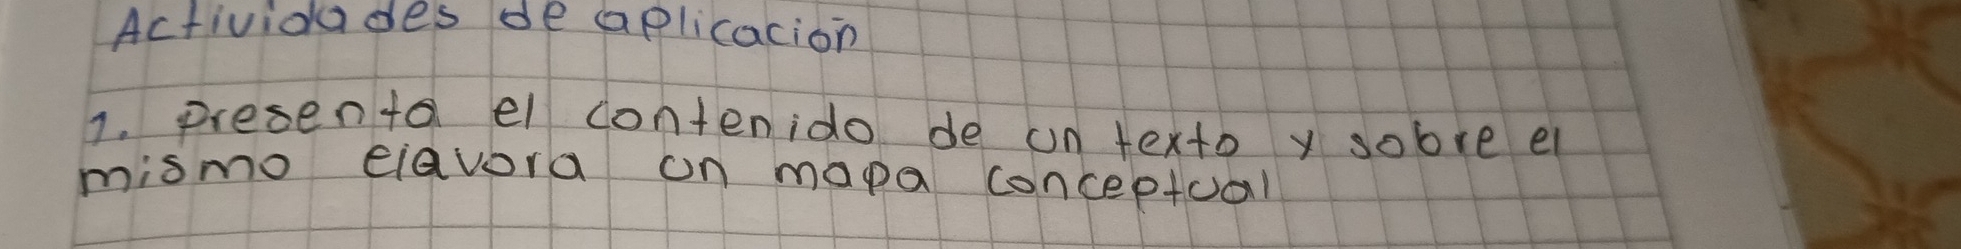 Actividades de aplicación
1. Presenta el contenido de un texto y sobre el
mismo elavora un mapa conceptual